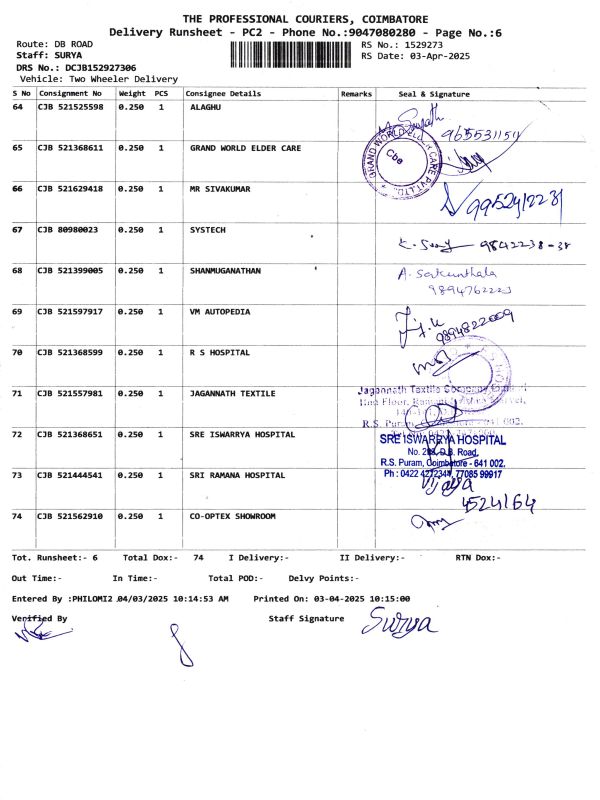 THE PROFESSIONAL COURIERS, COIMBATORE
Delivery Runsheet - PC2 - Phone No.:9047080280 - Page No.:6
Route: DB ROAD RS No.: 1529273
Staff: SURYA RS Date: 03-Apr-2025
DRS No.: DCJB152927306
Vehicle: Two Wheeler Delivery
S No Consignment No Weight PCS Consignee Details Remarks Seal & Signature
64 CJB 521525598 0.250 1 ALAGHU
65 CJB 521368611 0.250 1 GRAND WORLD ELDER CARE
GRAND WORLD ELDER CARE PVT LTD
Cbe
66 CJB 521629418 0.250 1 MR SIVAKUMAR
67 CJB 80980023 0.250 1 SYSTECH 9842238-38
68 CJB 521399005 0.250 1 SHANMUGANATHAN A. Sakunthala
69 CJB 521597917 0.250 1 VM AUTOPEDIA
9894822009
70 CJB 521368599 0.250 1 R S HOSPITAL
71 CJB 521557981 0.250 1 JAGANNATH TEXTILE Jagannath Textile Company
R.S. Puram
72 CJB 521368651 0.250 1 SRE ISWARRYA HOSPITAL SRE ISWARRYA HOSPITAL
D.B. Road,
R.S. Puram, Coimbatore - 641 002.
Ph : 0422 77085 99917
73 CJB 521444541 0.250 1 SRI RAMANA HOSPITAL Vijaya
4524164
74 CJB 521562910 0.250 1 CO-OPTEX SHOWROOM
Tot. Runsheet:- 6 Total Dox:- 74 I Delivery:- II Delivery:- RTN Dox:-
Out Time:- In Time:- Total POD:- Delvy Points:-
Entered By :PHILOMI2 04/03/2025 10:14:53 AM Printed On: 03-04-2025 10:15:00
Verified By Staff Signature Surya